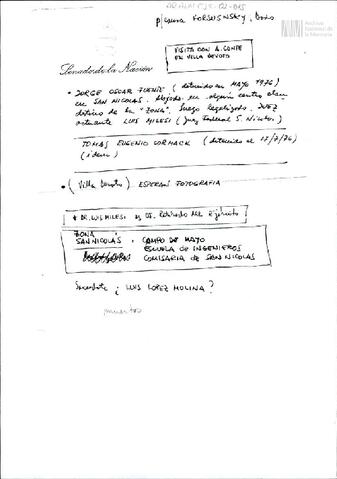 p/causa FORSUSNSKY, Boris
Archivo Nacional de la Memoria
VISITA CON A. CONTE
EN VILLA DEVOTO
Senado de la Nación
• JORGE OSCAR (detenido en MAYO 1976)
en SAN NICOLAS. Alojado en algún centro clan
destino de la "ZONA". Luego legalizado. JUEZ
actuante LUIS MILESI (Juez Federal S. Nicolas)
TOMAS EUGENIO CORMACK (detenido el 17/7/76)
(idem)
• (Villa Devoto) ESPERAN FOTOGRAFIA
* DR. LUIS MILESI es Retirado del Ejército
ZONA
SAN NICOLAS. CAMPO DE MAYO
ESCUELA DE INGENIEROS
COMISARIA DE SAN NICOLAS
Sacerdote ¿ LUIS LOPEZ MOLINA ?
muerto